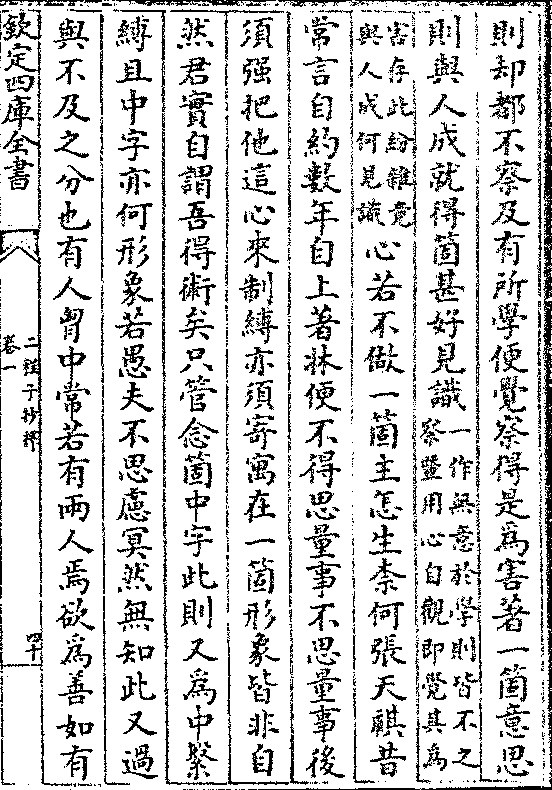 則却都不察及有所學便覺察得是為害著一箇意思
則與人成就得箇甚好見識一作無意於學則皆不之
察暨用心自觀即覺其為
害存此紛雜竟
與人成何見識心若不做一箇主怎生柰何張天祺昔
常言自約數年自上著牀便不得思量事不思量事後
須强把他這心來制縛亦須寄寓在一箇形象皆非自
然君實自謂吾得術矣只管念箇中字此則又為中繫
縛且中字亦何形象若愚夫不思慮冥然無知此又過
與不及之分也有人胷中常若有兩人焉欲為善如有
欽定四庫全書
二程子抄釋
卷一
四十